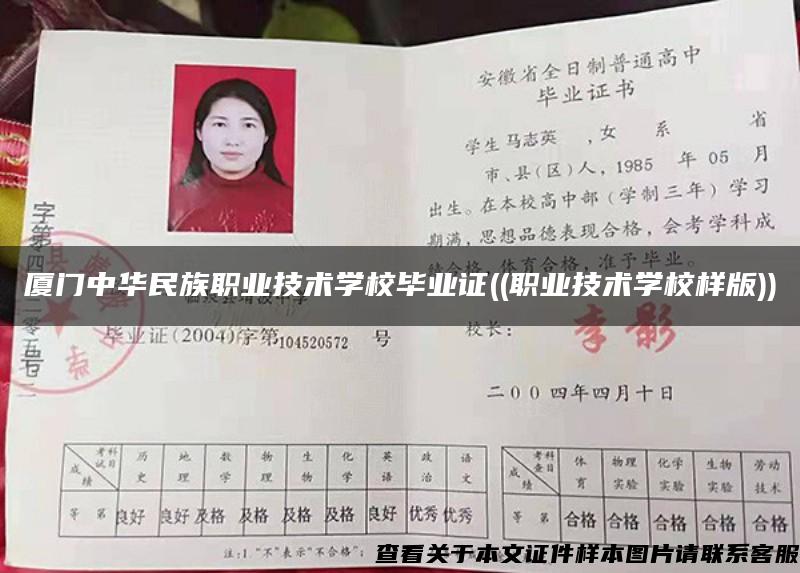 安徽省全日制普通高中
毕业证书
学生 马志英 ,女 系 省
市、县(区)人, 1985 年 05 月
出生。在本校高中部(学制三年)学习
期满,思想品德表现合格,会考学科成
绩合格,体育合格,准予毕业。
厦门中华民族职业技术学校毕业证((职业技术学校样版))
毕业证(2004)字第104520572 号
校长: 李影
二〇〇四年四月十日
字第
号
考试科目 历史 地理 数学 物理 生物 化学 英语 政治 语文
成绩
等第 良好 良好 及格 及格 及格 及格 良好 优秀 优秀
考查科目 体育 物理实验 化学实验 生物实验 劳动技术
成绩
等第 合格 合格 合格 合格 合格
注:1."不"表示"不合格";
查看关于本文证件样本图片请联系客服